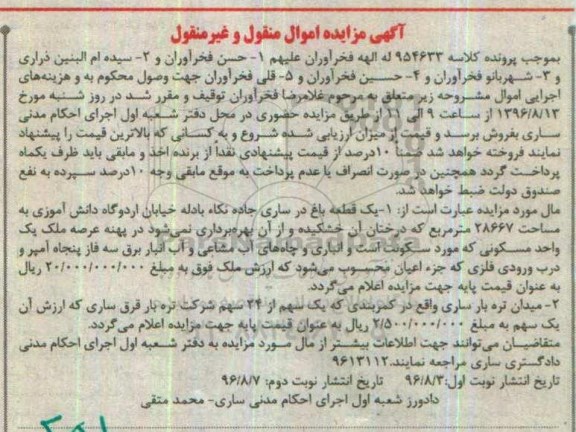 آگهی مزایده اموال منقول و غیرمنقول
بموجب پرونده کلاسه ۹۵۴۶۳۳ له الهه فخرآوران علیهم ۱- حسن فخرآوران و ۲- سیده ام البنین ذراری
و ۳- شهربانو فخرآوران و ۴- حسین فخرآوران و ۵- قلی فخرآوران جهت وصول محکوم به و هزینه‌های
اجرایی اموال مشروحه زیر متعلق به مرحوم غلامرضا فخرآوران توقیف و مقرر شد در روز شنبه مورخ
۱۳۹۶/۸/۱۳ از ساعت ۹ الی ۱۱ از طریق مزایده حضوری در محل دفتر شعبه اول اجرای احکام مدنی
ساری بفروش برسد و قیمت از میزان ارزیابی شده شروع و به کسانی که بالاترین قیمت را پیشنهاد
نمایند فروخته خواهد شد ضمناً ۱۰درصد از قیمت پیشنهادی نقداً از برنده اخذ و مابقی باید ظرف یکماه
پرداخت گردد همچنین در صورت انصراف یا عدم پرداخت به موقع مابقی وجه ۱۰درصد سپرده به نفع
صندوق دولت ضبط خواهد شد.
مال مورد مزایده عبارت است از: ۱-یک قطعه باغ در ساری جاده نکاء بادله خیابان اردوگاه دانش آموزی به
مساحت ۲۸۶۶۷ مترمربع که درختان آن خشکیده و از آن بهره‌برداری نمی‌شود در پهنه عرصه ملک یک
واحد مسکونی که مورد سکونت است و انباری و چاه‌های آب مشاعی و آب انبار برق سه فاز پنجاه آمپر و
درب ورودی فلزی که جزء اعیان محسوب می‌شود که ارزش ملک فوق به مبلغ ۲۰/۰۰۰/۰۰۰/۰۰۰ ریال
به عنوان قیمت پایه جهت مزایده اعلام می‌گردد.
۲- میدان تره بار ساری واقع در کمربندی که یک سهم از ۲۴ سهم شرکت تره بار قرق ساری که ارزش آن
یک سهم به مبلغ ۲/۵۰۰/۰۰۰/۰۰۰ ریال به عنوان قیمت پایه جهت مزایده اعلام می‌گردد.
متقاضیان می‌توانند جهت اطلاعات بیشتر از مال مورد مزایده به دفتر شعبه اول اجرای احکام مدنی
دادگستری ساری مراجعه نمایند.۹۶۱۳۱۱۲
تاریخ انتشار نوبت اول:۹۶/۸/۳ تاریخ انتشار نوبت دوم: ۹۶/۸/۷
دادورز شعبه اول اجرای احکام مدنی ساری- محمد متقی